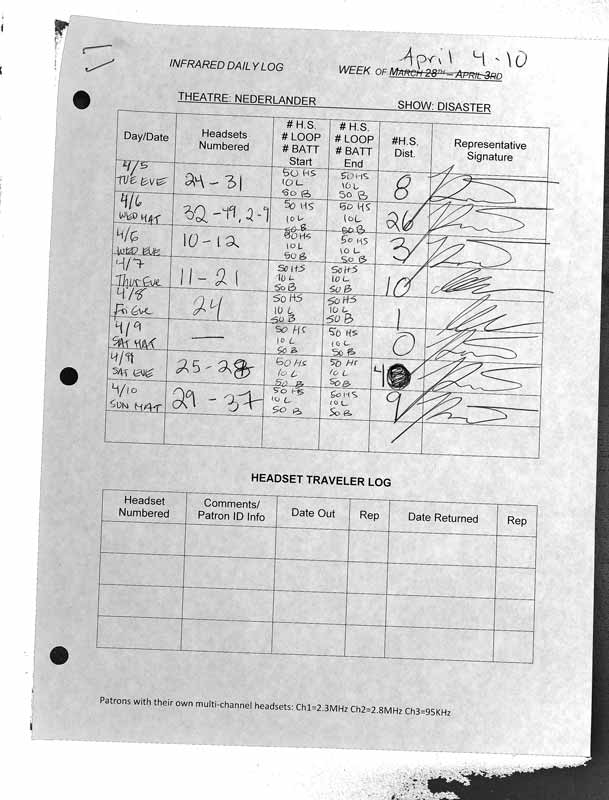 April 4-10
INFRARED DAILY LOG WEEK OF MARCH 28TH – APRIL 3RD
THEATRE: NEDERLANDER SHOW: DISASTER
Day/Date Headsets Numbered # H.S. # LOOP # BATT Start # H.S. # LOOP # BATT End #H.S. Dist. Representative Signature
4/5 TUE EVE 24-31 50 HS 10 L 50 B 50 HS 10 L 50 B 8
4/6 WED MAT 32-49, 2-9 50 HS 10 L 50 B 50 HS 10 L 50 B 26
4/6 WED EVE 10-12 50 HS 10 L 50 B 50 HS 10 L 50 B 3
4/7 Thur Eve 11-21 50 HS 10 L 50 B 50 HS 10 L 50 B 10
4/8 Fri Eve 24 50 HS 10 L 50 B 50 HS 10 L 50 B 1
4/9 SAT MAT — 50 HS 10 L 50 B 50 HS 10 L 50 B 0
4/9 SAT EVE 25-28 50 HS 10 L 50 B 50 HS 10 L 50 B 4
4/10 SUN MAT 29-37 50 HS 10 L 50 B 50 HS 10 L 50 B 9
HEADSET TRAVELER LOG
Headset Numbered Comments/ Patron ID Info Date Out Rep Date Returned Rep
Patrons with their own multi-channel headsets: Ch1=2.3MHz Ch2=2.8MHz Ch3=95KHz